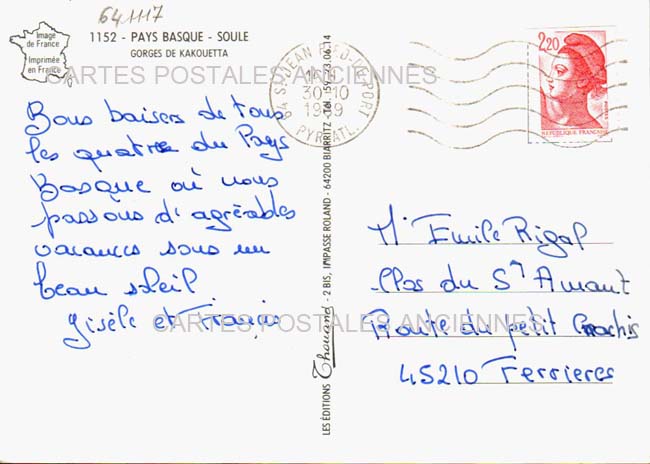 641117
Image
de France
Imprimée
en France
1152 - PAYS BASQUE - SOULE
GORGES DE KAKOUETTA
CARTES POSTALES ANCIENNES
Bons baisers de tous
les quatre du Pays
Basque où nous
passons d'agréables
vacances sous un
beau soleil
Gisèle et François
CARTES POSTALES ANCIENNES
LES ÉDITIONS Thouand - 2 BIS, IMPASSE ROLAND - 64200 BIARRITZ - Tél. 59 23.06.14
64 ST-JEAN PIED-DE-PORT
30-10
1989
PYR. ATL.
2,20
REPUBLIQUE FRANÇAISE
Mr Emile Rigal
Clos du St Amant
Route du petit
45210 Ferrieres